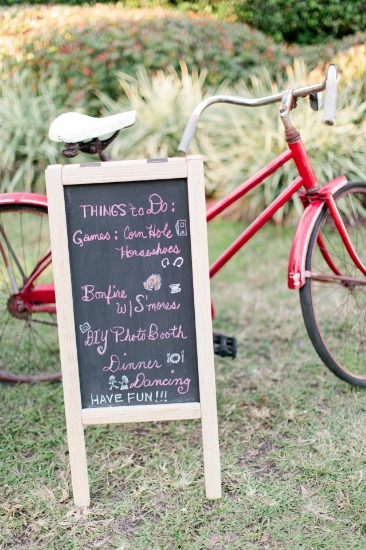 THINGS to Do:
Games: Corn Hole
Horseshoes
Bonfire
w/ S'mores
DIY Photo Booth
Dinner
Dancing
HAVE FUN!!!